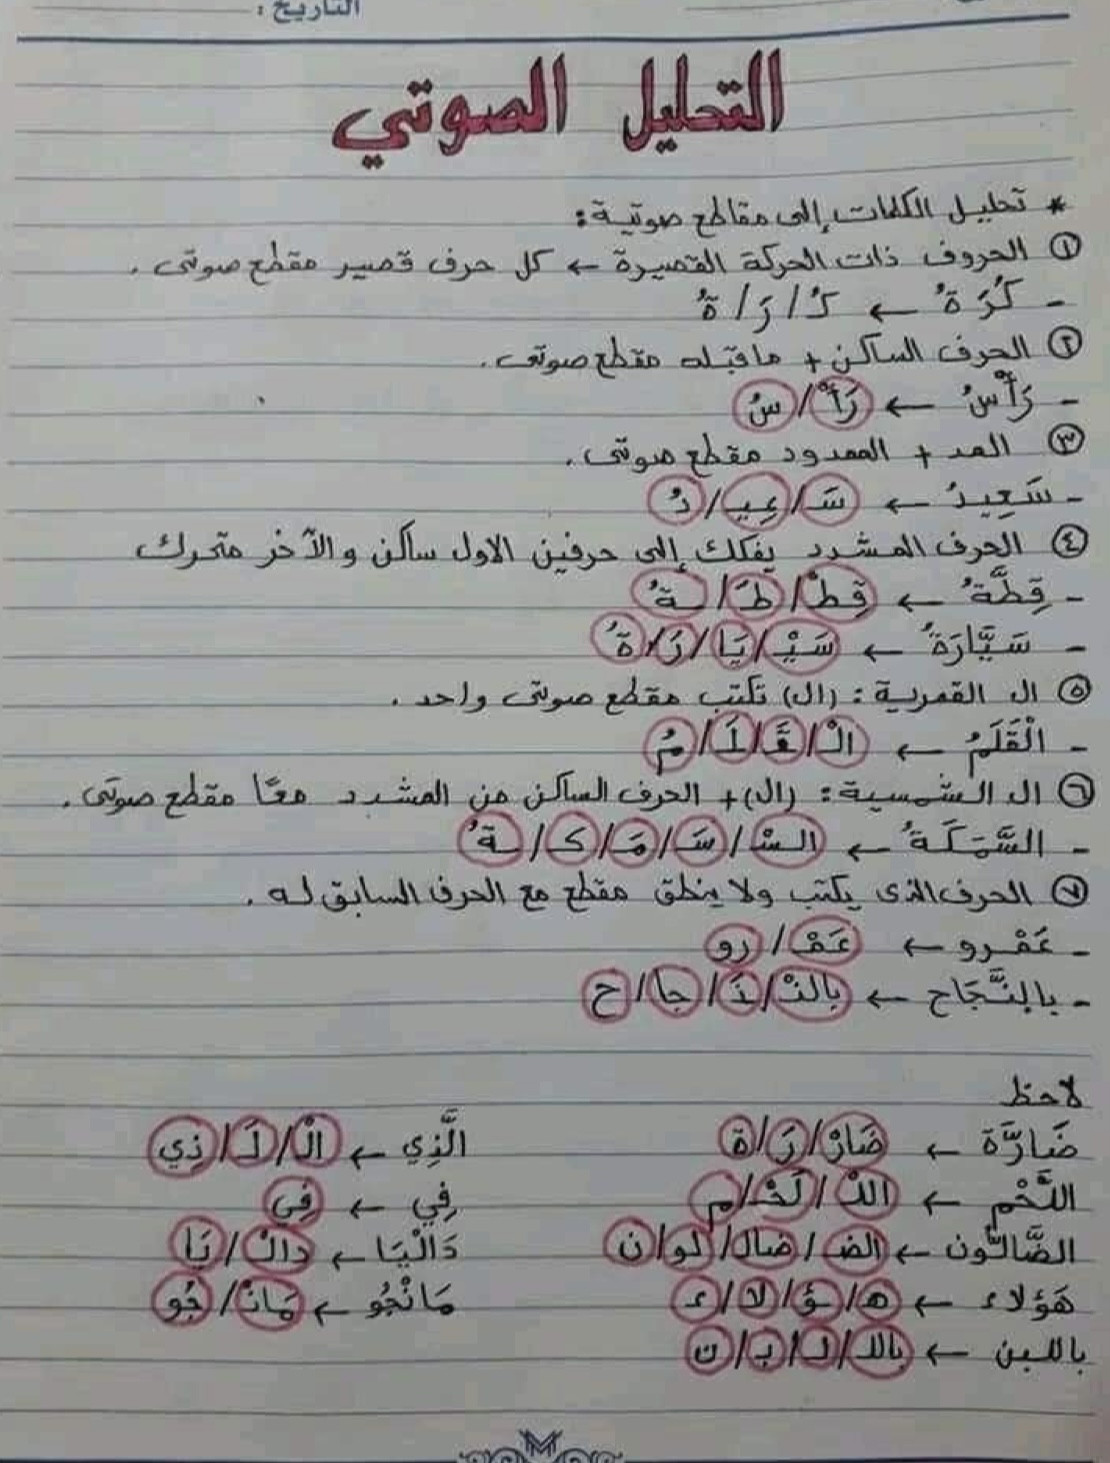 التاريخ :
التحليل الصوتي
* تحليل الكلمات إلى مقاطع صوتية :
① الحروف ذات الحركة القصيرة ← كل حرف قصير مقطع صوتى .
- كُرَةُ ← كُ / رَ / ةُ
② الحرف الساكن + ماقبله مقطع صوتى .
- رَأْسُ ← رَأْ / سُ
③ المد + الممدود مقطع صوتى .
- سَعِيدُ ← سَ / عِيـ / دُ
④ الحرف المشدد يفكك إلى حرفين الاول ساكن والآخر متحرك
- قِطَّةُ ← قِطْ / طَـ / ـةُ
- سَيَّارَةُ ← سَيْـ / يَا / رَ / ةُ
⑤ ال القمرية : (ال) تكتب مقطع صوتى واحد .
- الْقَلَمُ ← الْـ / قَـ / لَـ / مُ
⑥ ال الشمسية : (ال) + الحرف الساكن من المشدد معًا مقطع صوتى .
- السَّمَكَةُ ← السْـ / سَـ / مَـ / كَـ / ـةُ
⑦ الحرف الذى يكتب ولا ينطق مقطع مع الحرف السابق له .
- عَمْرو ← عَمْـ / رو
- بالنَّجَاح ← بالنْـ / نَـ / جا / ح
لاحظ
ضَارَّة ← ضَارْ / رَ / ة
الَّذِي ← الْ / لَـ / ذِي
اللَّحْم ← اللْـ / لَحْـ / م
فِي ← فِي
الضَّالُّون ← الضـ / ضال / لو / ن
دَالْيَا ← دالْـ / يَا
هَؤلاء ← هـ / ؤ / لا / ء
مَانْجُو ← مَانْـ / جُو
باللبن ← باللـ / لـ / بـ / ن